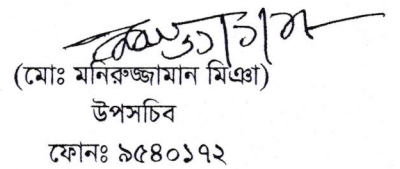 (মোঃ মনিরুজ্জামান মিঞা)
উপসচিব
ফোনঃ ৯৫৪০১৭২